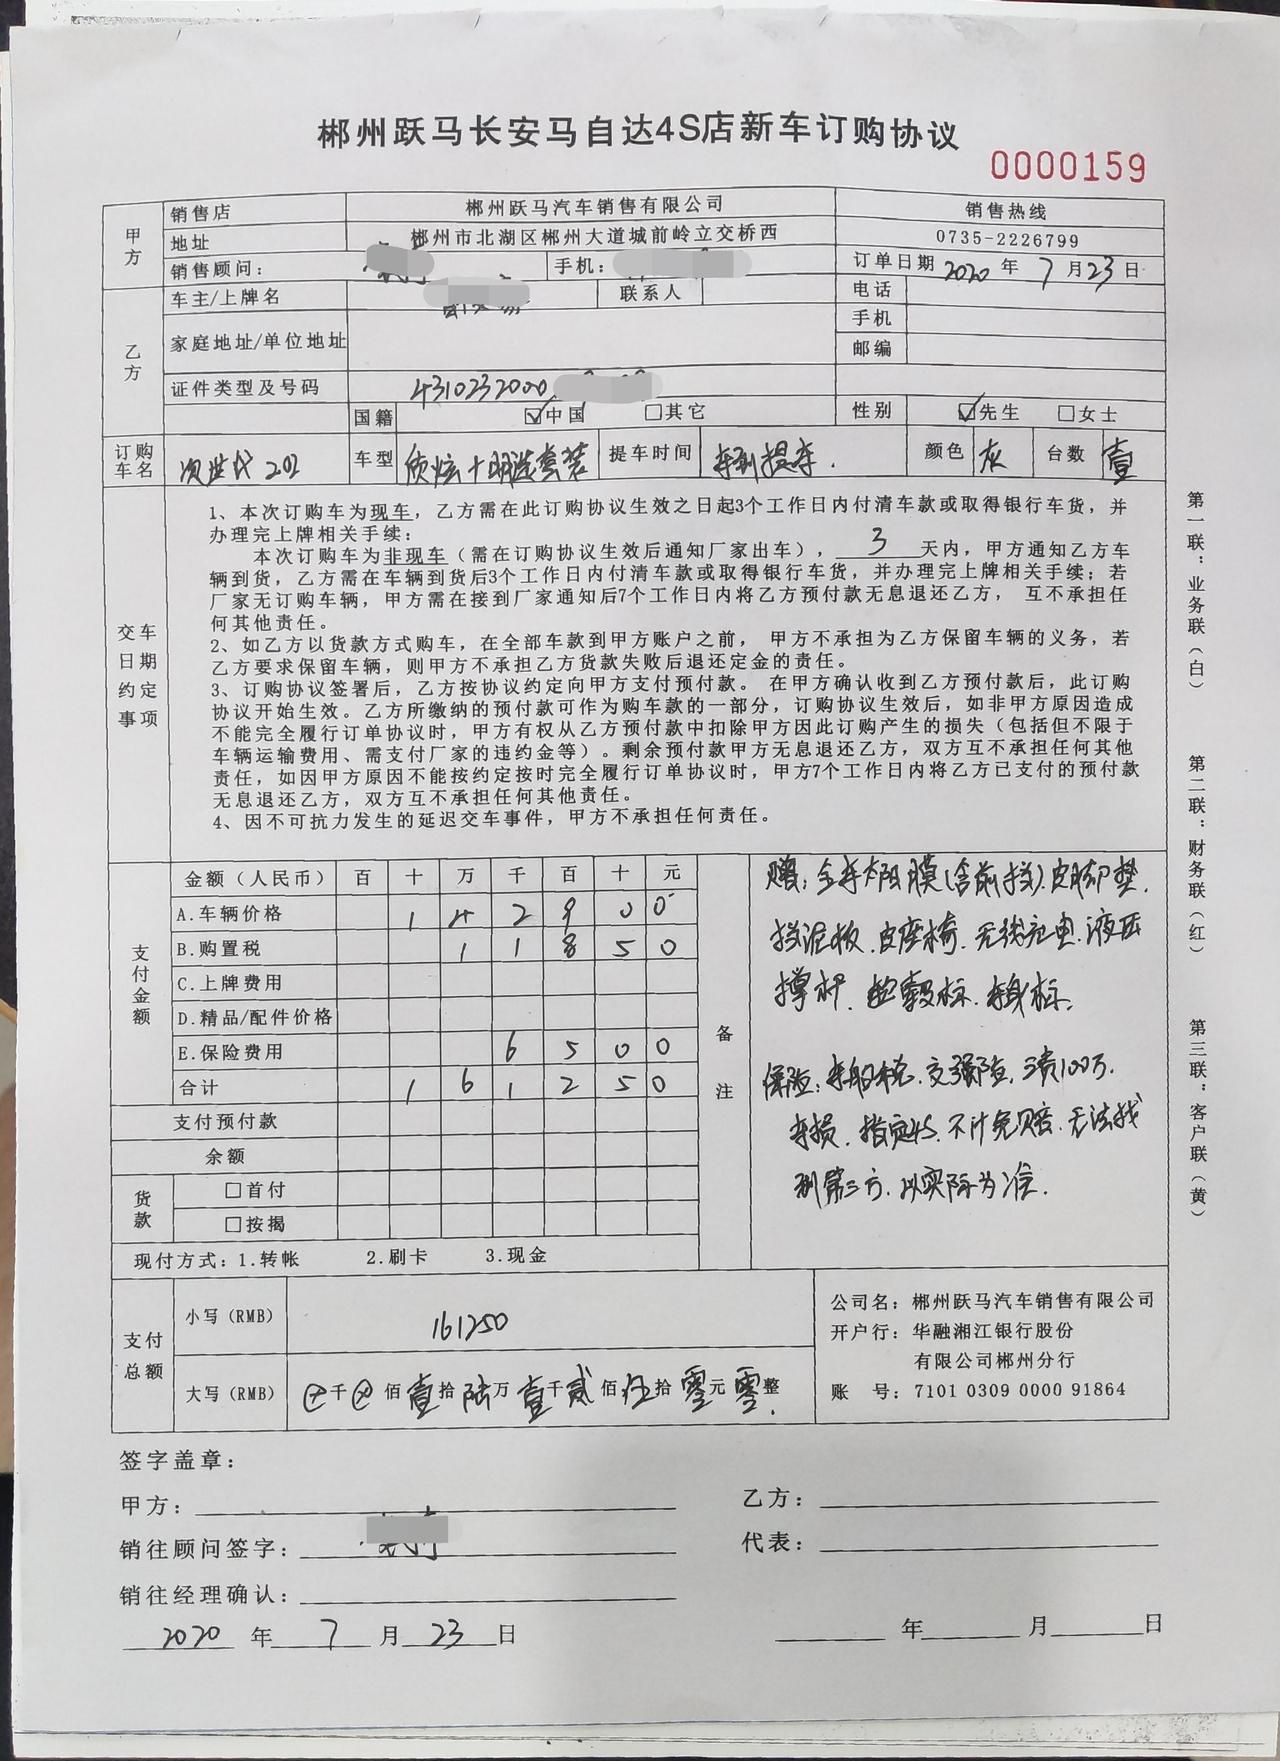 郴州跃马长安马自达4S店新车订购协议
0000159
甲方
销售店 郴州跃马汽车销售有限公司 销售热线
地址 郴州市北湖区郴州大道城前岭立交桥西 0735-2226799
销售顾问： 手机： 订单日期 2020 年 7 月 23 日
乙方
车主/上牌名 联系人 电话
家庭地址/单位地址 手机
邮编
证件类型及号码 4310232000
国籍 ☑中国 □其它 性别 ☑先生 □女士
订购车名 次世代 202 车型 质炫+明选套装 提车时间 车到提车. 颜色 灰 台数 壹
交车日期约定事项
1、本次订购车为现车，乙方需在此订购协议生效之日起3个工作日内付清车款或取得银行车货，并
办理完上牌相关手续：
本次订购车为非现车（需在订购协议生效后通知厂家出车），3天内，甲方通知乙方车
辆到货，乙方需在车辆到货后3个工作日内付清车款或取得银行车货，并办理完上牌相关手续；若
厂家无订购车辆，甲方需在接到厂家通知后7个工作日内将乙方预付款无息退还乙方， 互不承担任
何其他责任。
2、如乙方以货款方式购车，在全部车款到甲方账户之前， 甲方不承担为乙方保留车辆的义务，若
乙方要求保留车辆，则甲方不承担乙方货款失败后退还定金的责任。
3、订购协议签署后，乙方按协议约定向甲方支付预付款。 在甲方确认收到乙方预付款后，此订购
协议开始生效。乙方所缴纳的预付款可作为购车款的一部分，订购协议生效后，如非甲方原因造成
不能完全履行订单协议时，甲方有权从乙方预付款中扣除甲方因此订购产生的损失（包括但不限于
车辆运输费用、需支付厂家的违约金等）。剩余预付款甲方无息退还乙方，双方互不承担任何其他
责任，如因甲方原因不能按约定按时完全履行订单协议时，甲方7个工作日内将乙方已支付的预付款
无息退还乙方，双方互不承担任何其他责任。
4、因不可抗力发生的延迟交车事件，甲方不承担任何责任。
支付金额
金额（人民币） 百 十 万 千 百 十 元
A.车辆价格 1 4 2 9 0 0
B.购置税 1 1 8 5 0
C.上牌费用
D.精品/配件价格
E.保险费用 6 5 0 0
合计 1 6 1 2 5 0
支付预付款
余额
货款 □首付
□按揭
现付方式：1.转帐 2.刷卡 3.现金
备注
赠：全车太阳膜(含前挡).皮脚垫.
挡泥板.皮座椅.无线充电.液压
撑杆.轮毂标.车身标.
保险：车船税.交强险.三责100万.
车损.指定4S.不计免赔.无法找
到第三方.以实际为准.
支付总额
小写（RMB） 161250
大写（RMB） ⊗千⊗佰壹拾陆万壹千贰佰伍拾零元零整
公司名：郴州跃马汽车销售有限公司
开户行：华融湘江银行股份
有限公司郴州分行
账 号：7101 0309 0000 91864
签字盖章：
甲方： 乙方：
销往顾问签字： 代表：
销往经理确认：
2020 年 7 月 23 日 年 月 日
第一联：业务联（白）
第二联：财务联（红）
第三联：客户联（黄）